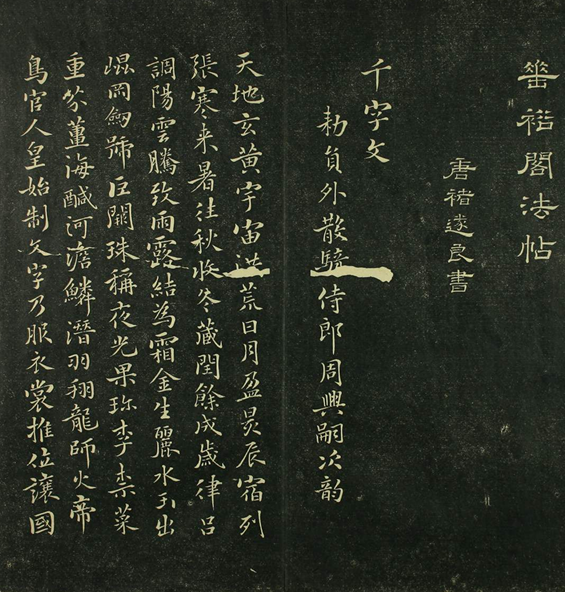 垂裕閣法帖
唐褚遂良書
千字文
勑員外散騎侍郎周興嗣次韵
天地玄黃宇宙洪荒日月盈昃辰宿列
張寒来暑往秋收冬藏閏餘成歲律呂
調陽雲騰致雨露結為霜金生麗水玉出
崐岡劎號巨闕珠稱夜光果珎李柰菜
重芥薑海鹹河澹鱗潛羽翔龍師火帝
鳥官人皇始制文字乃服衣裳推位讓國